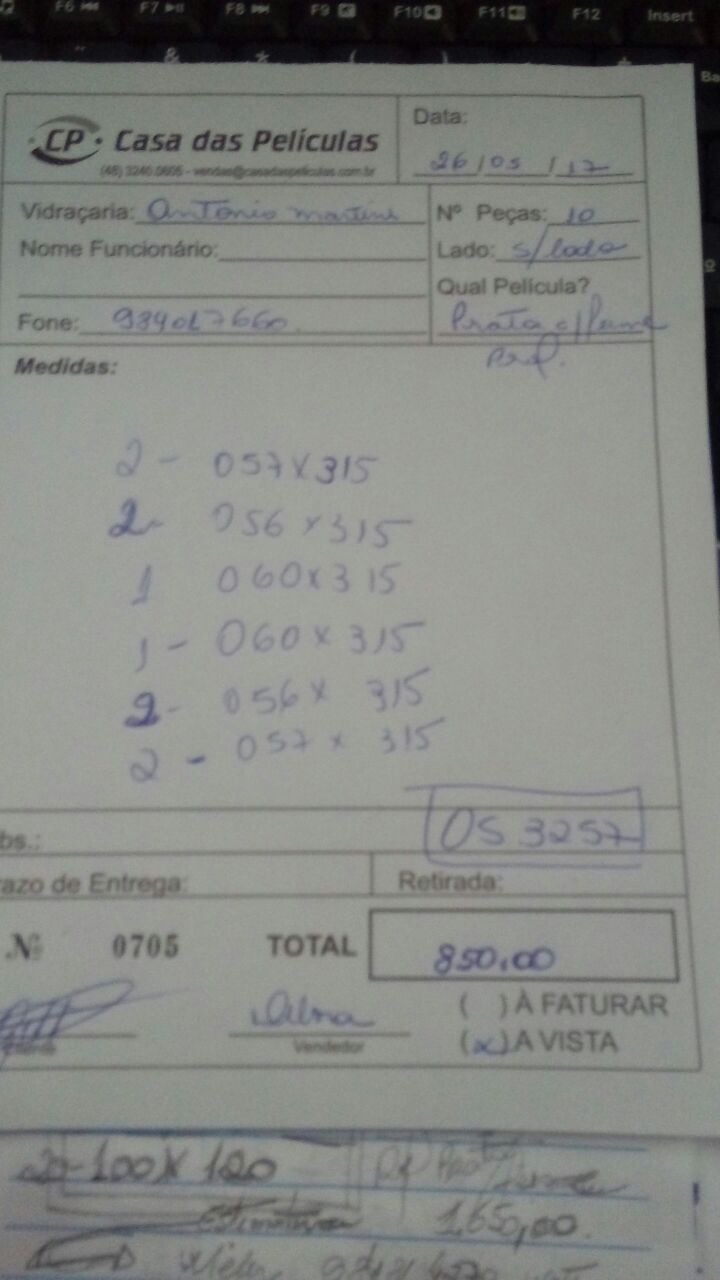 F6 F7 F8 F9 F10 F11 F12 Insert
CP Casa das Películas
(48) 3240.0605 - vendas@casadaspeliculas.com.br
Data:
26/05/17
Vidraçaria: Antonio martins
Nº Peças: 10
Nome Funcionário:
Lado: s/lado
Qual Película?
Fone: 984017660
Prata
Medidas:
2 - 057 x 315
2 - 056 x 315
1 060 x 315
1 - 060 x 315
2 - 056 x 315
2 - 057 x 315
OS 3257
bs.:
razo de Entrega:
Retirada:
Nº 0705 TOTAL 850,00
( ) À FATURAR
Vendedor
(x) A VISTA
2 - 100 x 120
1.650,00